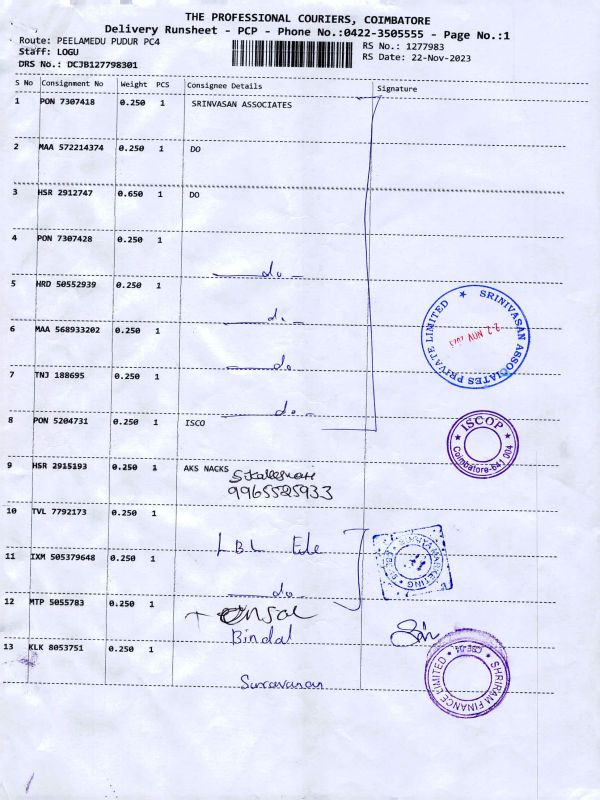 THE PROFESSIONAL COURIERS, COIMBATORE
Delivery Runsheet - PCP - Phone No.:0422-3505555 - Page No.:1
Route: PEELAMEDU PUDUR PC4
RS No.: 1277983
Staff: LOGU
RS Date: 22-Nov-2023
DRS No.: DCJB127798301
S No Consignment No Weight PCS Consignee Details Signature
1 PON 7307418 0.250 1 SRINVASAN ASSOCIATES
2 MAA 572214374 0.250 1 DO
3 HSR 2912747 0.650 1 DO
4 PON 7307428 0.250 1
do
5 HRD 50552939 0.250 1
do
SRINIVASAN ASSOCIATES PRIVATE LIMITED
22 NOV 2023
6 MAA 568933202 0.250 1
do
7 TNJ 188695 0.250 1
do
8 PON 5204731 0.250 1 ISCO
ISCOP
Coimbatore-641 004
9 HSR 2915193 0.250 1 AKS NACKS
9965525933
10 TVL 7792173 0.250 1
LBL
11 IXM 505379648 0.250 1
MARKETING
do
12 MTP 5055783 0.250 1
Bindal
13 KLK 8053751 0.250 1
SHRIRAM FINANCE LIMITED
CBE-04
Saravanan